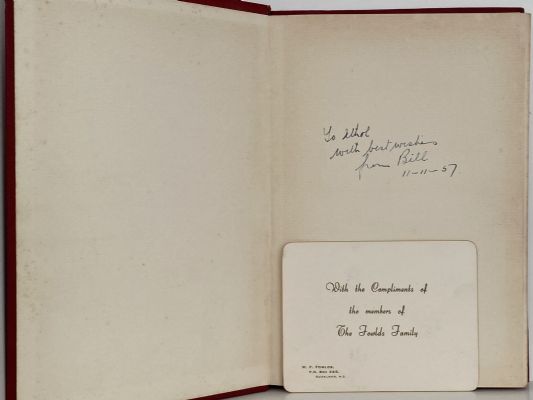 To Ethol
with best wishes
from Bill
11-11-57
With the Compliments of
the members of
The Fowlds Family
W. P. FOWLDS,
P.O. BOX
AUCKLAND, N.Z.